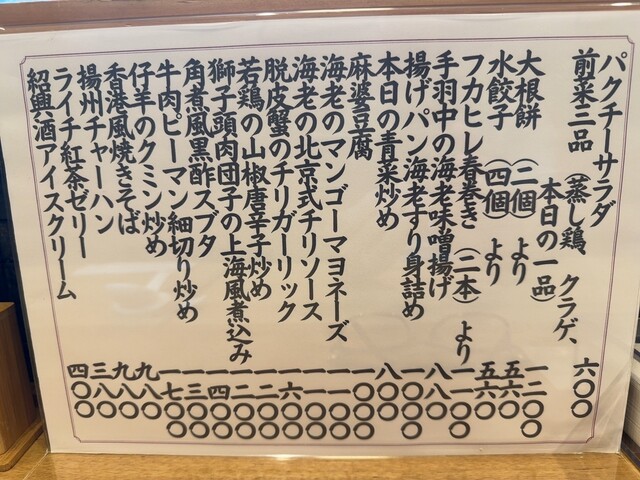 パクチーサラダ 六〇〇
前菜三品（蒸し鶏、クラゲ、
本日の一品） 一二〇〇
大根餅（二個）より 五六〇
水餃子（四個）より 五六〇
フカヒレ春巻き（二本）より 一一〇〇
手羽中の海老味噌揚げ 八八〇
揚げパン海老すり身詰め 一〇〇〇
本日の青菜炒め 八〇〇
麻婆豆腐 一〇〇〇
海老のマンゴーマヨネーズ 一一〇〇
海老の北京式チリソース 一一〇〇
脱皮蟹のチリガーリック 一六〇〇
若鶏の山椒唐辛子炒め 一二〇〇
獅子頭肉団子の上海風煮込み 一二〇〇
角煮風黒酢スブタ 一四〇〇
牛肉ピーマン細切り炒め 一三〇〇
仔羊のクミン炒め 一七〇〇
香港風焼きそば 九八〇
揚州チャーハン 九八〇
ライチ紅茶ゼリー 三八〇
紹興酒アイスクリーム 四〇〇